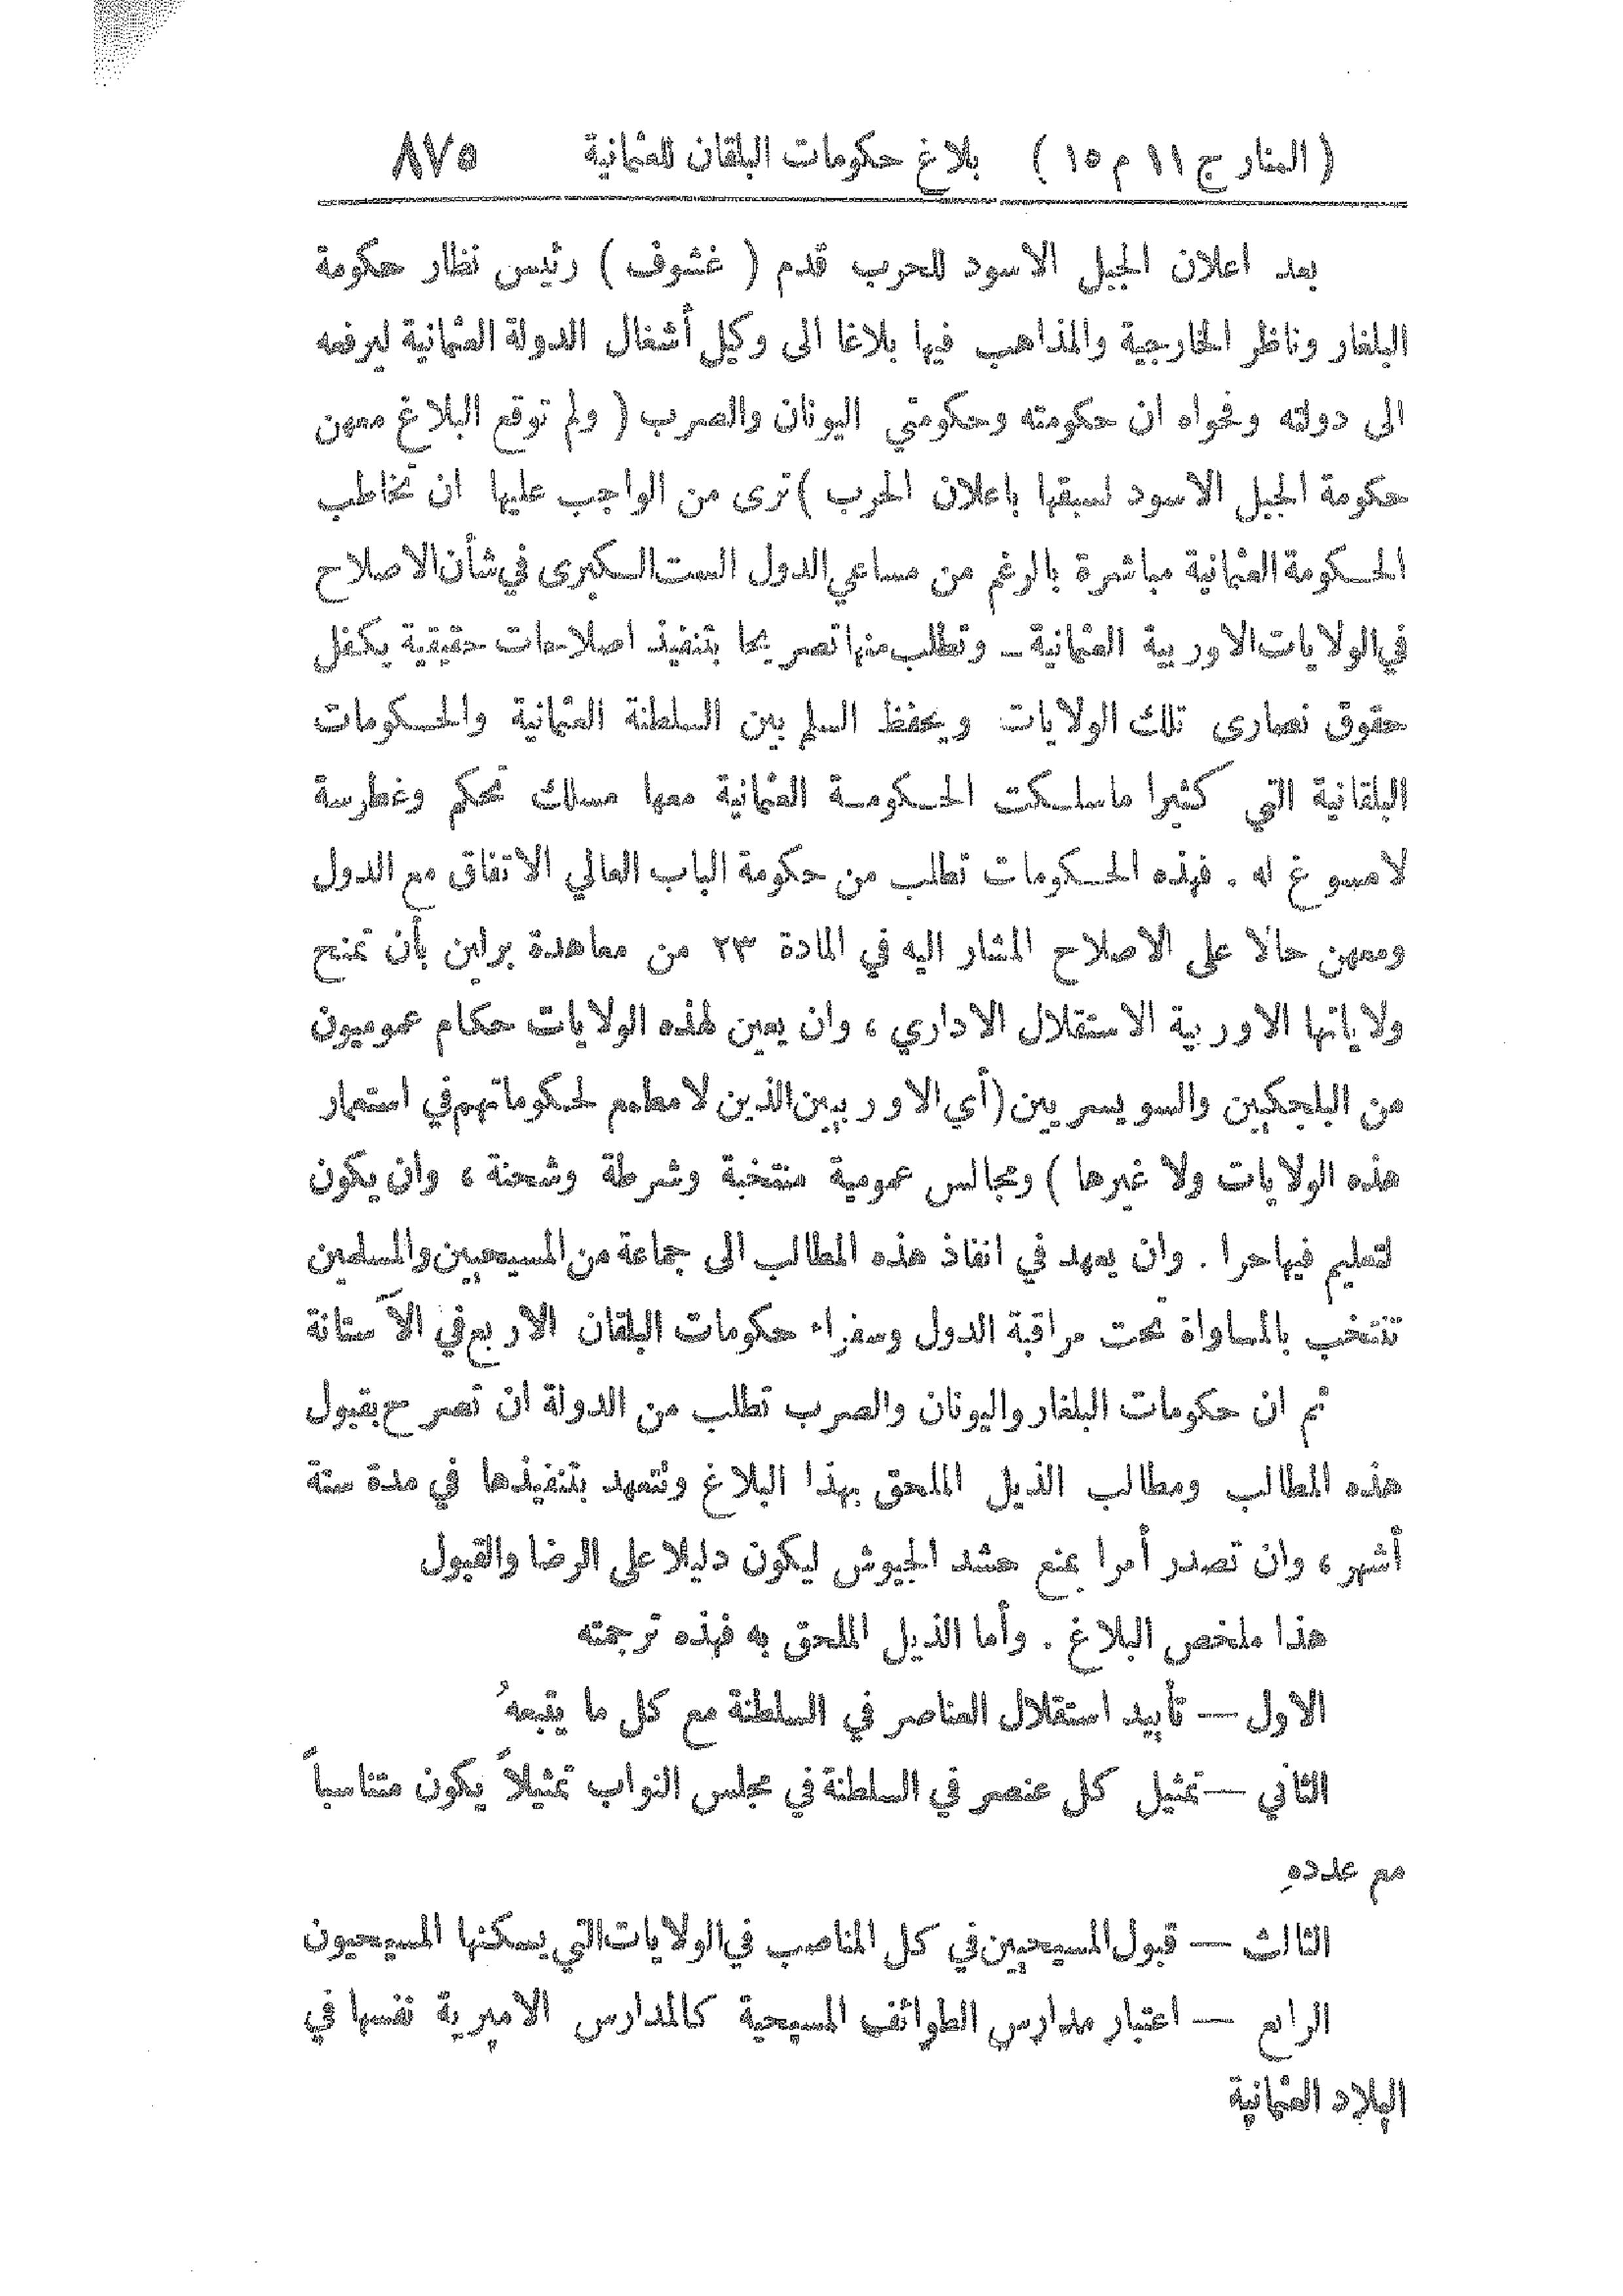 ( المنار ج ١١ م ١٥ ) بلاغ حكومات البلقان للعثمانية ٨٧٥
بعد اعلان الجبل الاسود للحرب قدم ( غشوف ) رئيس نظار حكومة
البلغار وناظر الخارجية والمذاهب فيها بلاغا الى وكيل أشغال الدولة العثمانية ليرفعه
الى دولته وفحواه ان حكومته وحكومتي اليونان والصرب ( ولم توقع البلاغ معهن
حكومة الجبل الاسود لسبقها باعلان الحرب ) ترى من الواجب عليها ان تخاطب
الحكومة العثمانية مباشرة بالرغم من مساعي الدول الست الكبرى في شأن الاصلاح
في الولايات الاوربية العثمانية ـ وتطلب منها تصريحا بتنفيذ اصلاحات حقيقية يكفل
حقوق نصارى تلك الولايات ويحفظ السلم بين السلطنة العثمانية والحكومات
البلقانية التي كثيرا ما سلكت الحكومة العثمانية معها مسلك تحكم وغطرسة
لا مسوغ له . فهذه الحكومات تطلب من حكومة الباب العالي الاتفاق مع الدول
ومعهن حالا على الاصلاح المشار اليه في المادة ٢٣ من معاهدة برلين بأن تمنح
ولاياتها الاوربية الاستقلال الاداري ، وان يعين لهذه الولايات حكام عموميون
من البلجكيين والسويسريين ( أي الاوربيين الذين لا مطمع لحكوماتهم في استعمار
هذه الولايات ولا غيرها ) ومجالس عمومية منتخبة وشرطة وشحنة ، وان يكون
لتعليم فيها حرا . وان يعهد في انفاذ هذه المطالب الى جماعة من المسيحيين والمسلمين
تنتخب بالمساواة تحت مراقبة الدول وسفراء حكومات البلقان الاربع في الآستانة
ثم ان حكومات البلغار واليونان والصرب تطلب من الدولة ان تصرح بقبول
هذه المطالب ومطالب الذيل الملحق بهذا البلاغ وتتعهد بتنفيذها في مدة ستة
أشهر ، وان تصدر أمرا بمنع حشد الجيوش ليكون دليلا على الرضا والقبول
هذا ملخص البلاغ . وأما الذيل الملحق به فهذه ترجمته
الاول — تأييد استقلال العناصر في السلطنة مع كل ما يتبعهُ
الثاني — تمثيل كل عنصر في السلطنة في مجلس النواب تمثيلاً يكون متناسباً
مع عددهِ
الثالث — قبول المسيحيين في كل المناصب في الولايات التي يسكنها المسيحيون
الرابع — اعتبار مدارس الطوائف المسيحية كالمدارس الاميرية نفسها في
البلاد العثمانية